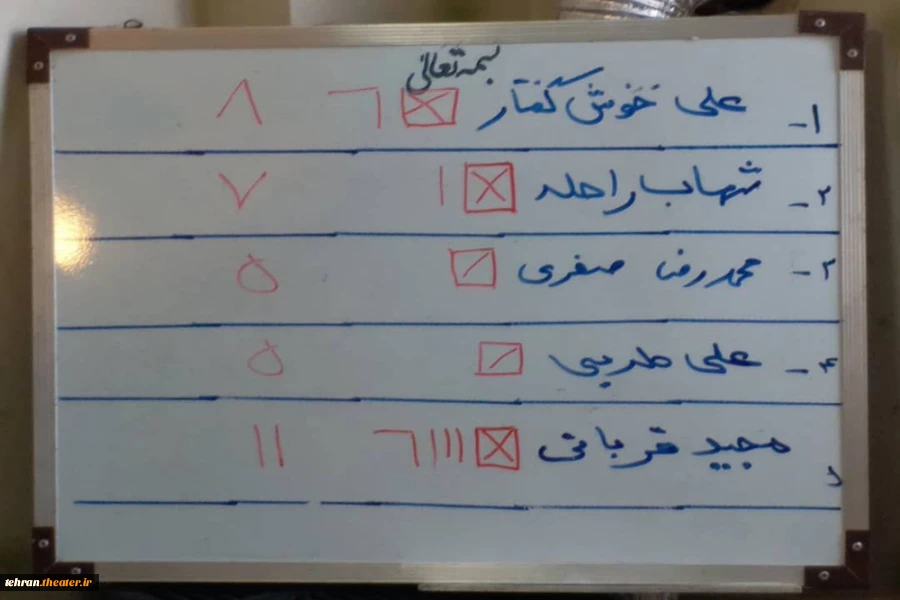 بسمه تعالی
۱- علی خوش گفتار ۸
۲- شهاب راحله ۷
۳- محمدرضا صفری ۵
۴- علی طریبی ۵
۵ مجید قربانی ۱۱
tehran.theater.ir